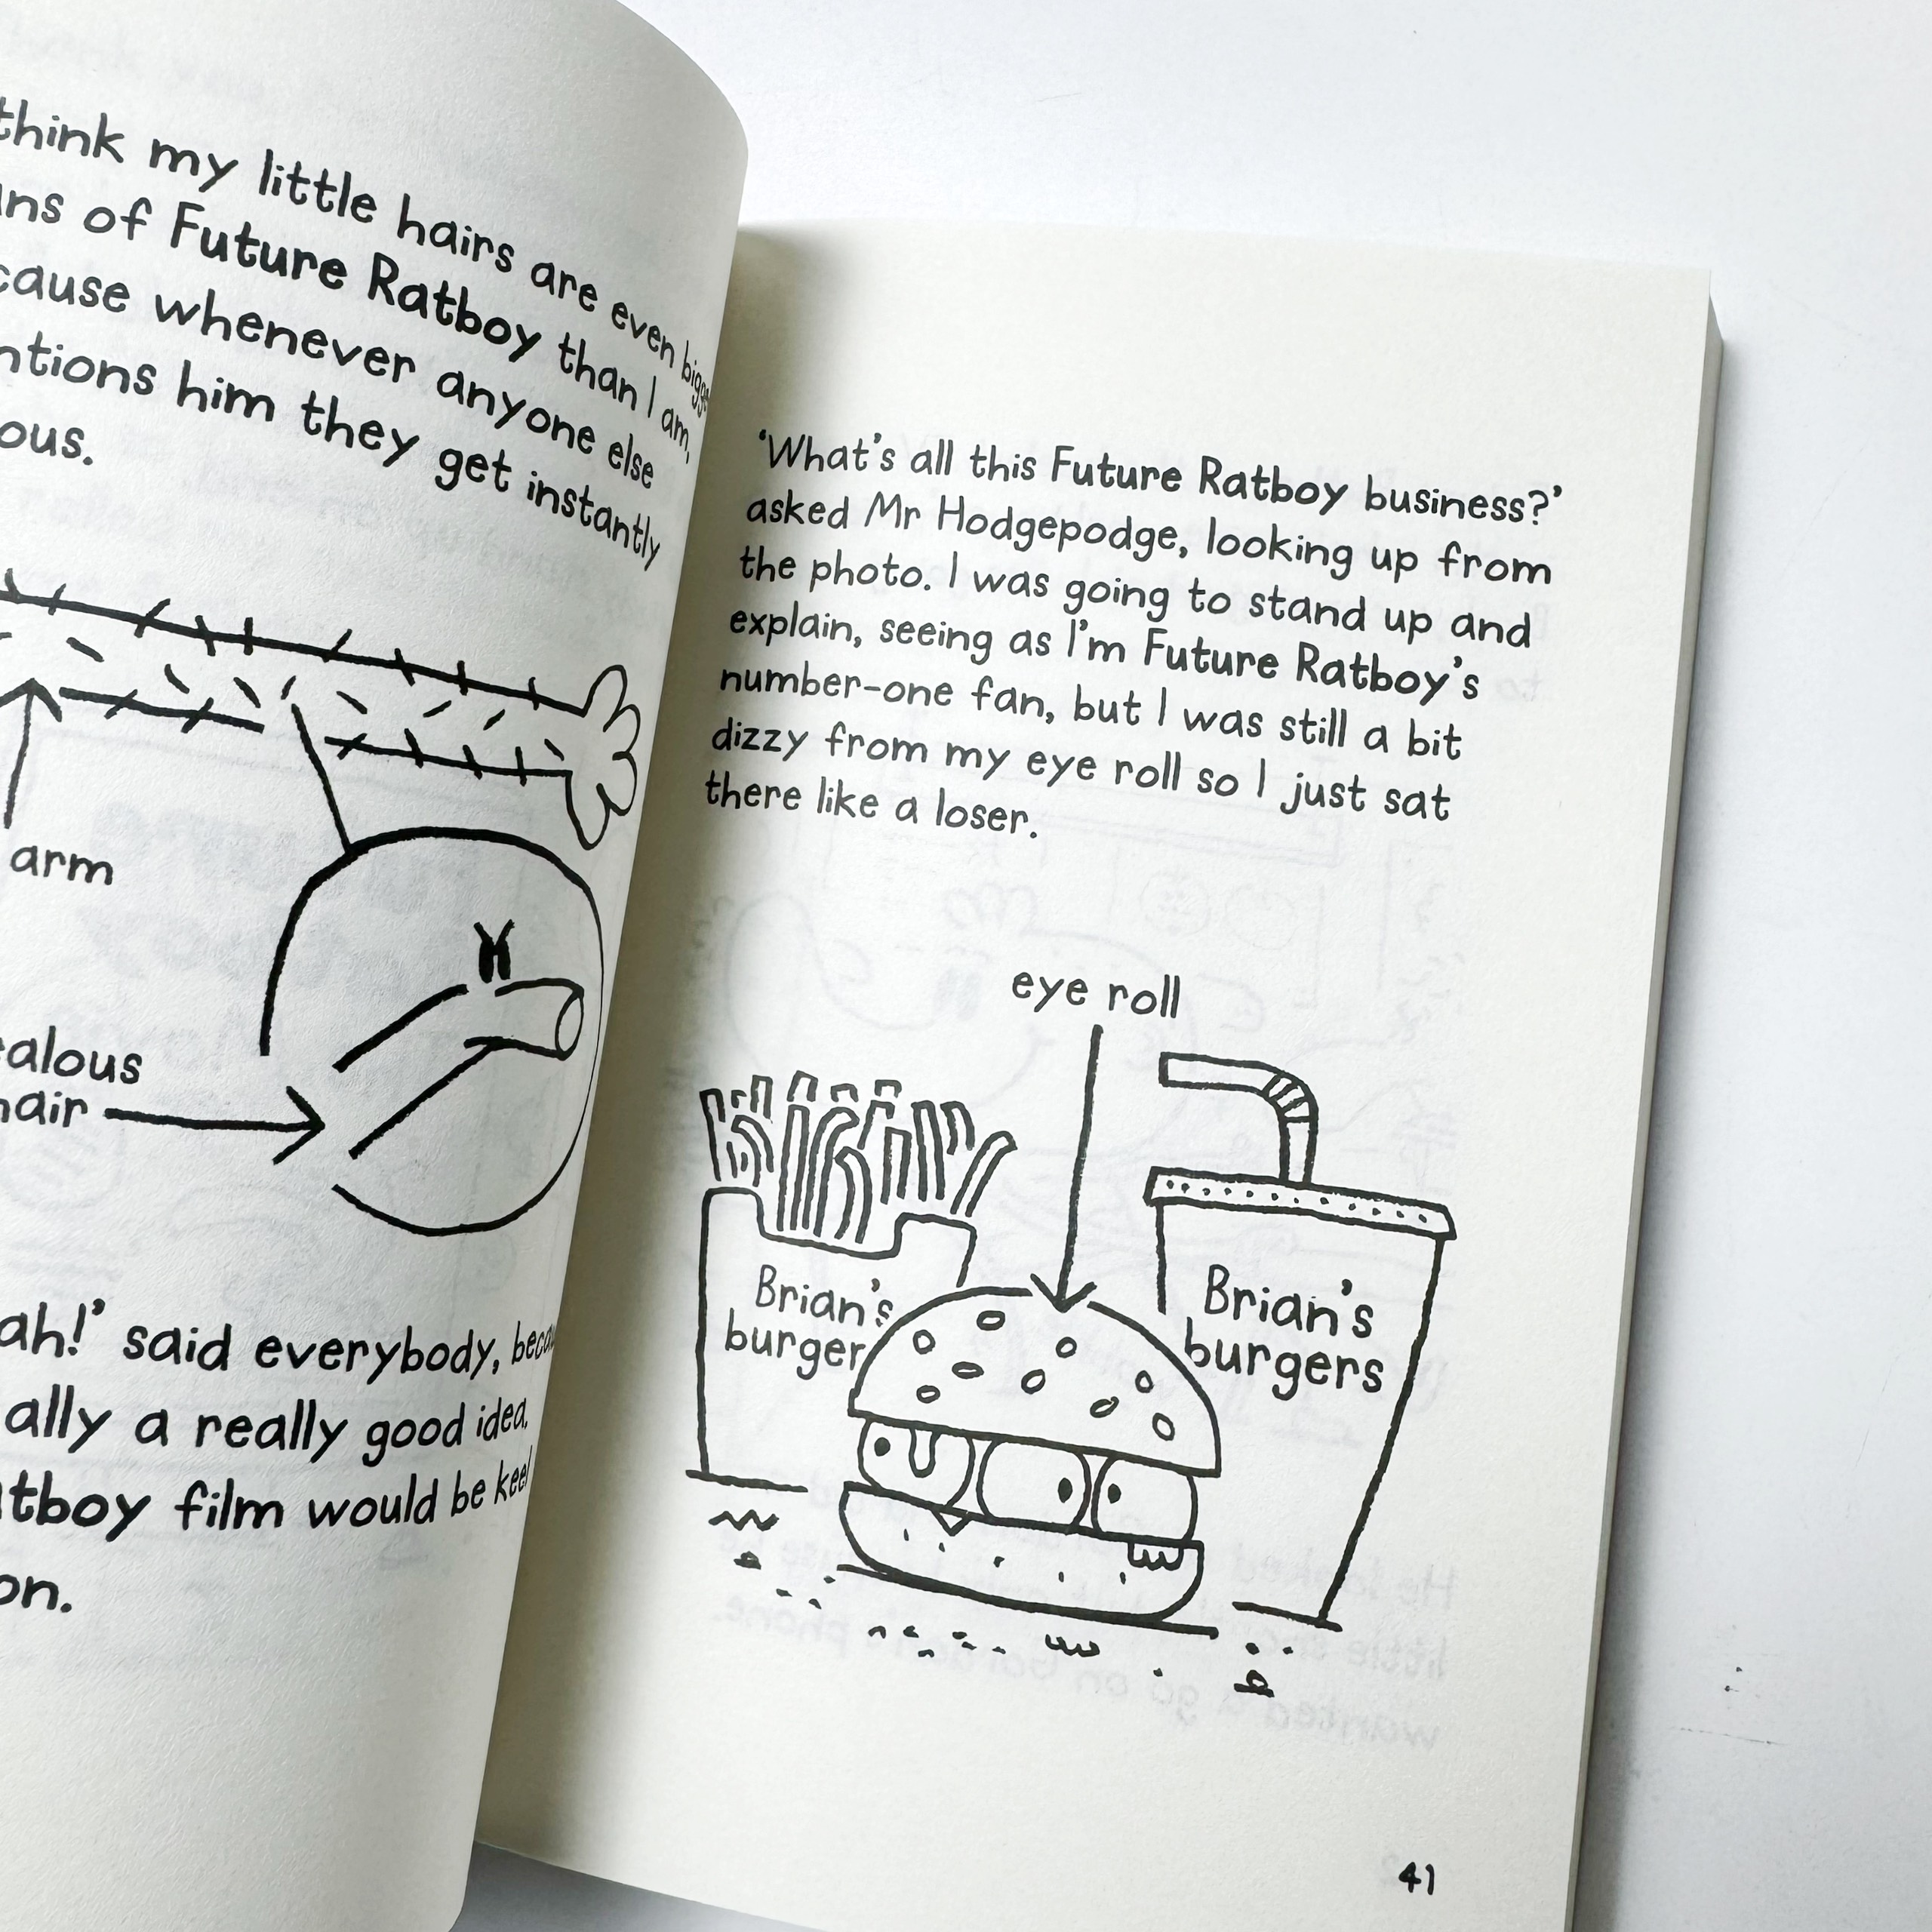 think my little hairs are even
of Future Ratboy than I am,
whenever anyone else
him they get instantly
arm
hair
said everybody,
a really good idea,
film would be
'What's all this Future Ratboy business?'
asked Mr Hodgepodge, looking up from
the photo. I was going to stand up and
explain, seeing as I'm Future Ratboy's
number-one fan, but I was still a bit
dizzy from my eye roll so I just sat
there like a loser.
eye roll
Brian's
burger
Brian's
burgers
41